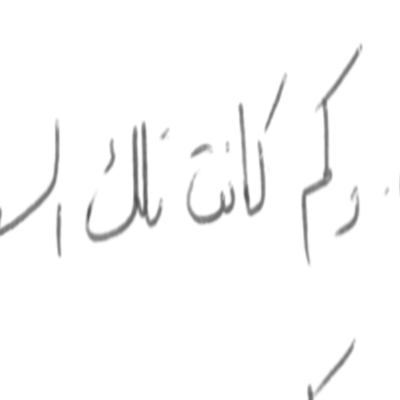 وكم كانت تلك